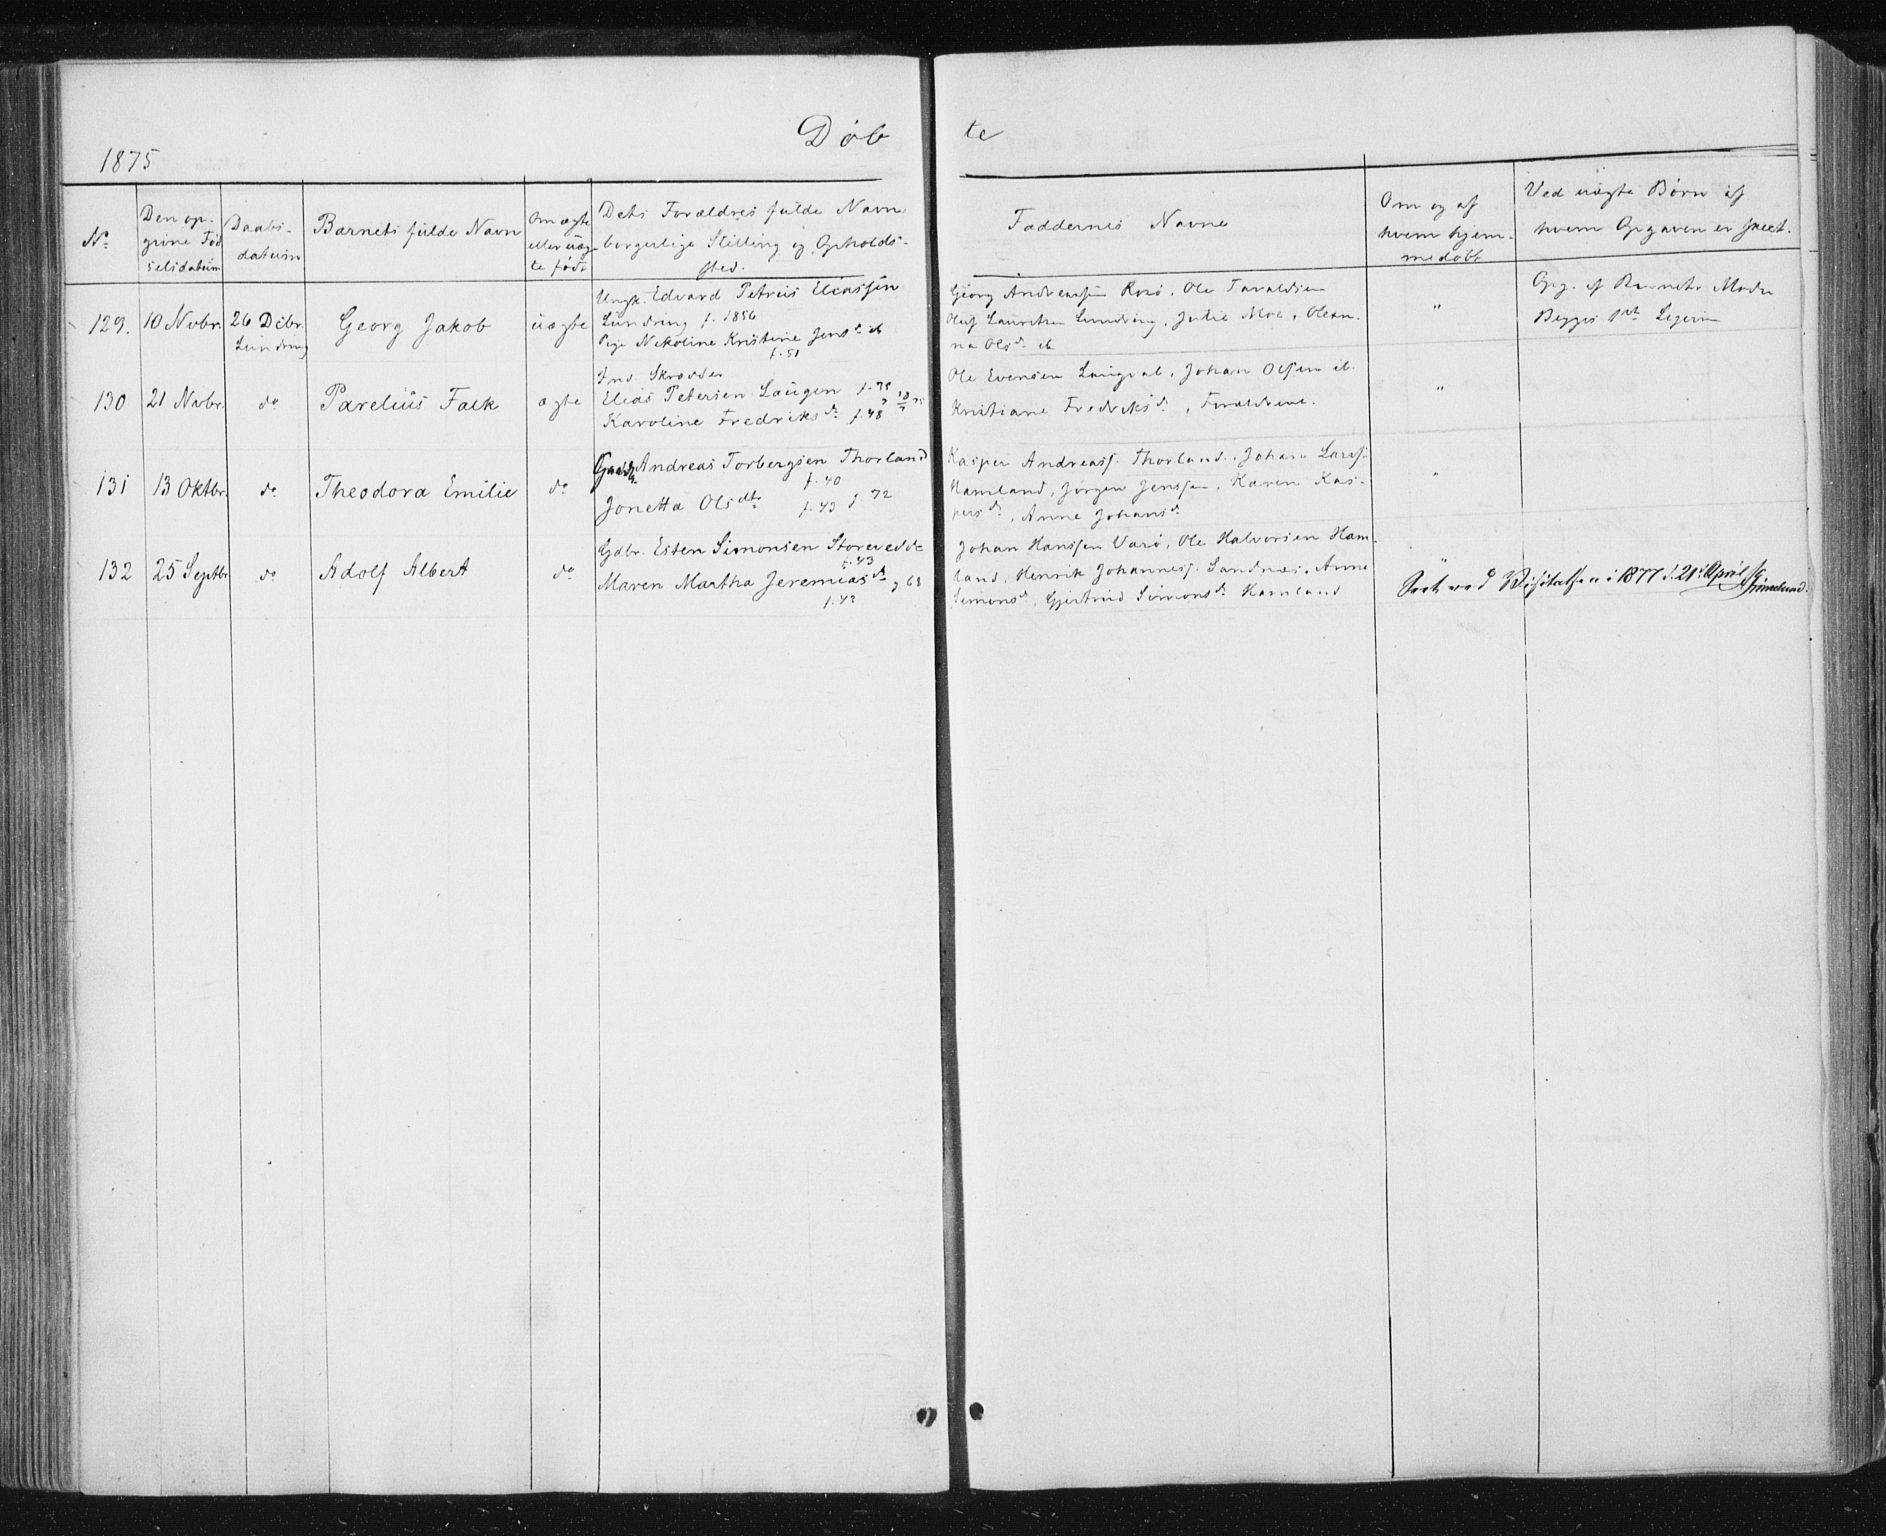 Døbte
1875
No
Den opgivne Fødselsdatum
Daabsdatum
Barnets fulde Navn
Om ægte eller uægte født
Dets Forældres fulde Navn, borgerlige Stilling og Opholdssted.
Faddernes Navne
Om og af hvem hjemmedøbt
Ved uægte Børn af hvem Opgaven er skeet.
129. 10 Novbr. 26 Dcbr. Georg Jakob uægte Ungk. Edvard Petrus Eliassen
Lundring Lundring f. 1856
Pige Nikoline Kristine Jensd. ib
f. 51
Georg Andreassen Rosø, Ole Taraldsen
Oluf Lauritsen Lundring, Julie Moe, Olean-
na Olsd. ib.
"
Opg. af Barnets Moder
Begges 1ste Leierm
130 21 Novbr. do Parelius Falk ægte Ind Skrædder
Elias Petersen Laugen
Karoline Fredriksd. f. 48
Ole Evensen Laugval, Johan Olsen ib.
Kristiane Fredriksd., Forældrene.
"
131 13 Oktbr. do Theodora Emilie do Andreas Torbergsen Thorland
f. 40
Jonetta Olsdtr f. 43 g 72
Kasper Andreass. Thorland, Johan Larss.
Hamland, Jørgen Jenssen, Karen Kas-
persd., Anne Johansd.
"
132 25 Septbr do Adolf Albert do Gdbr. Esten Simonsen Storevedde
f. 43
Maren Martha Jeremiasd. g 68
f. 42
Johan Hanssen Varø, Ole Halvorsen Ham-
land, Henrik Johanness. Sandnæs, Anne
Simonsd., Gjertrud Simonsd. Hamland
"
Seet ved Visitatsen i 1877 d. 21de April